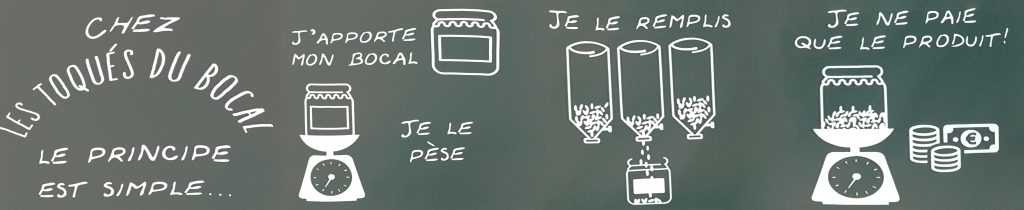 CHEZ
LES TOQUÉS DU BOCAL
LE PRINCIPE
EST SIMPLE...
J'APPORTE
MON BOCAL
JE LE
PÈSE
JE LE REMPLIS
JE NE PAIE
QUE LE PRODUIT!
€